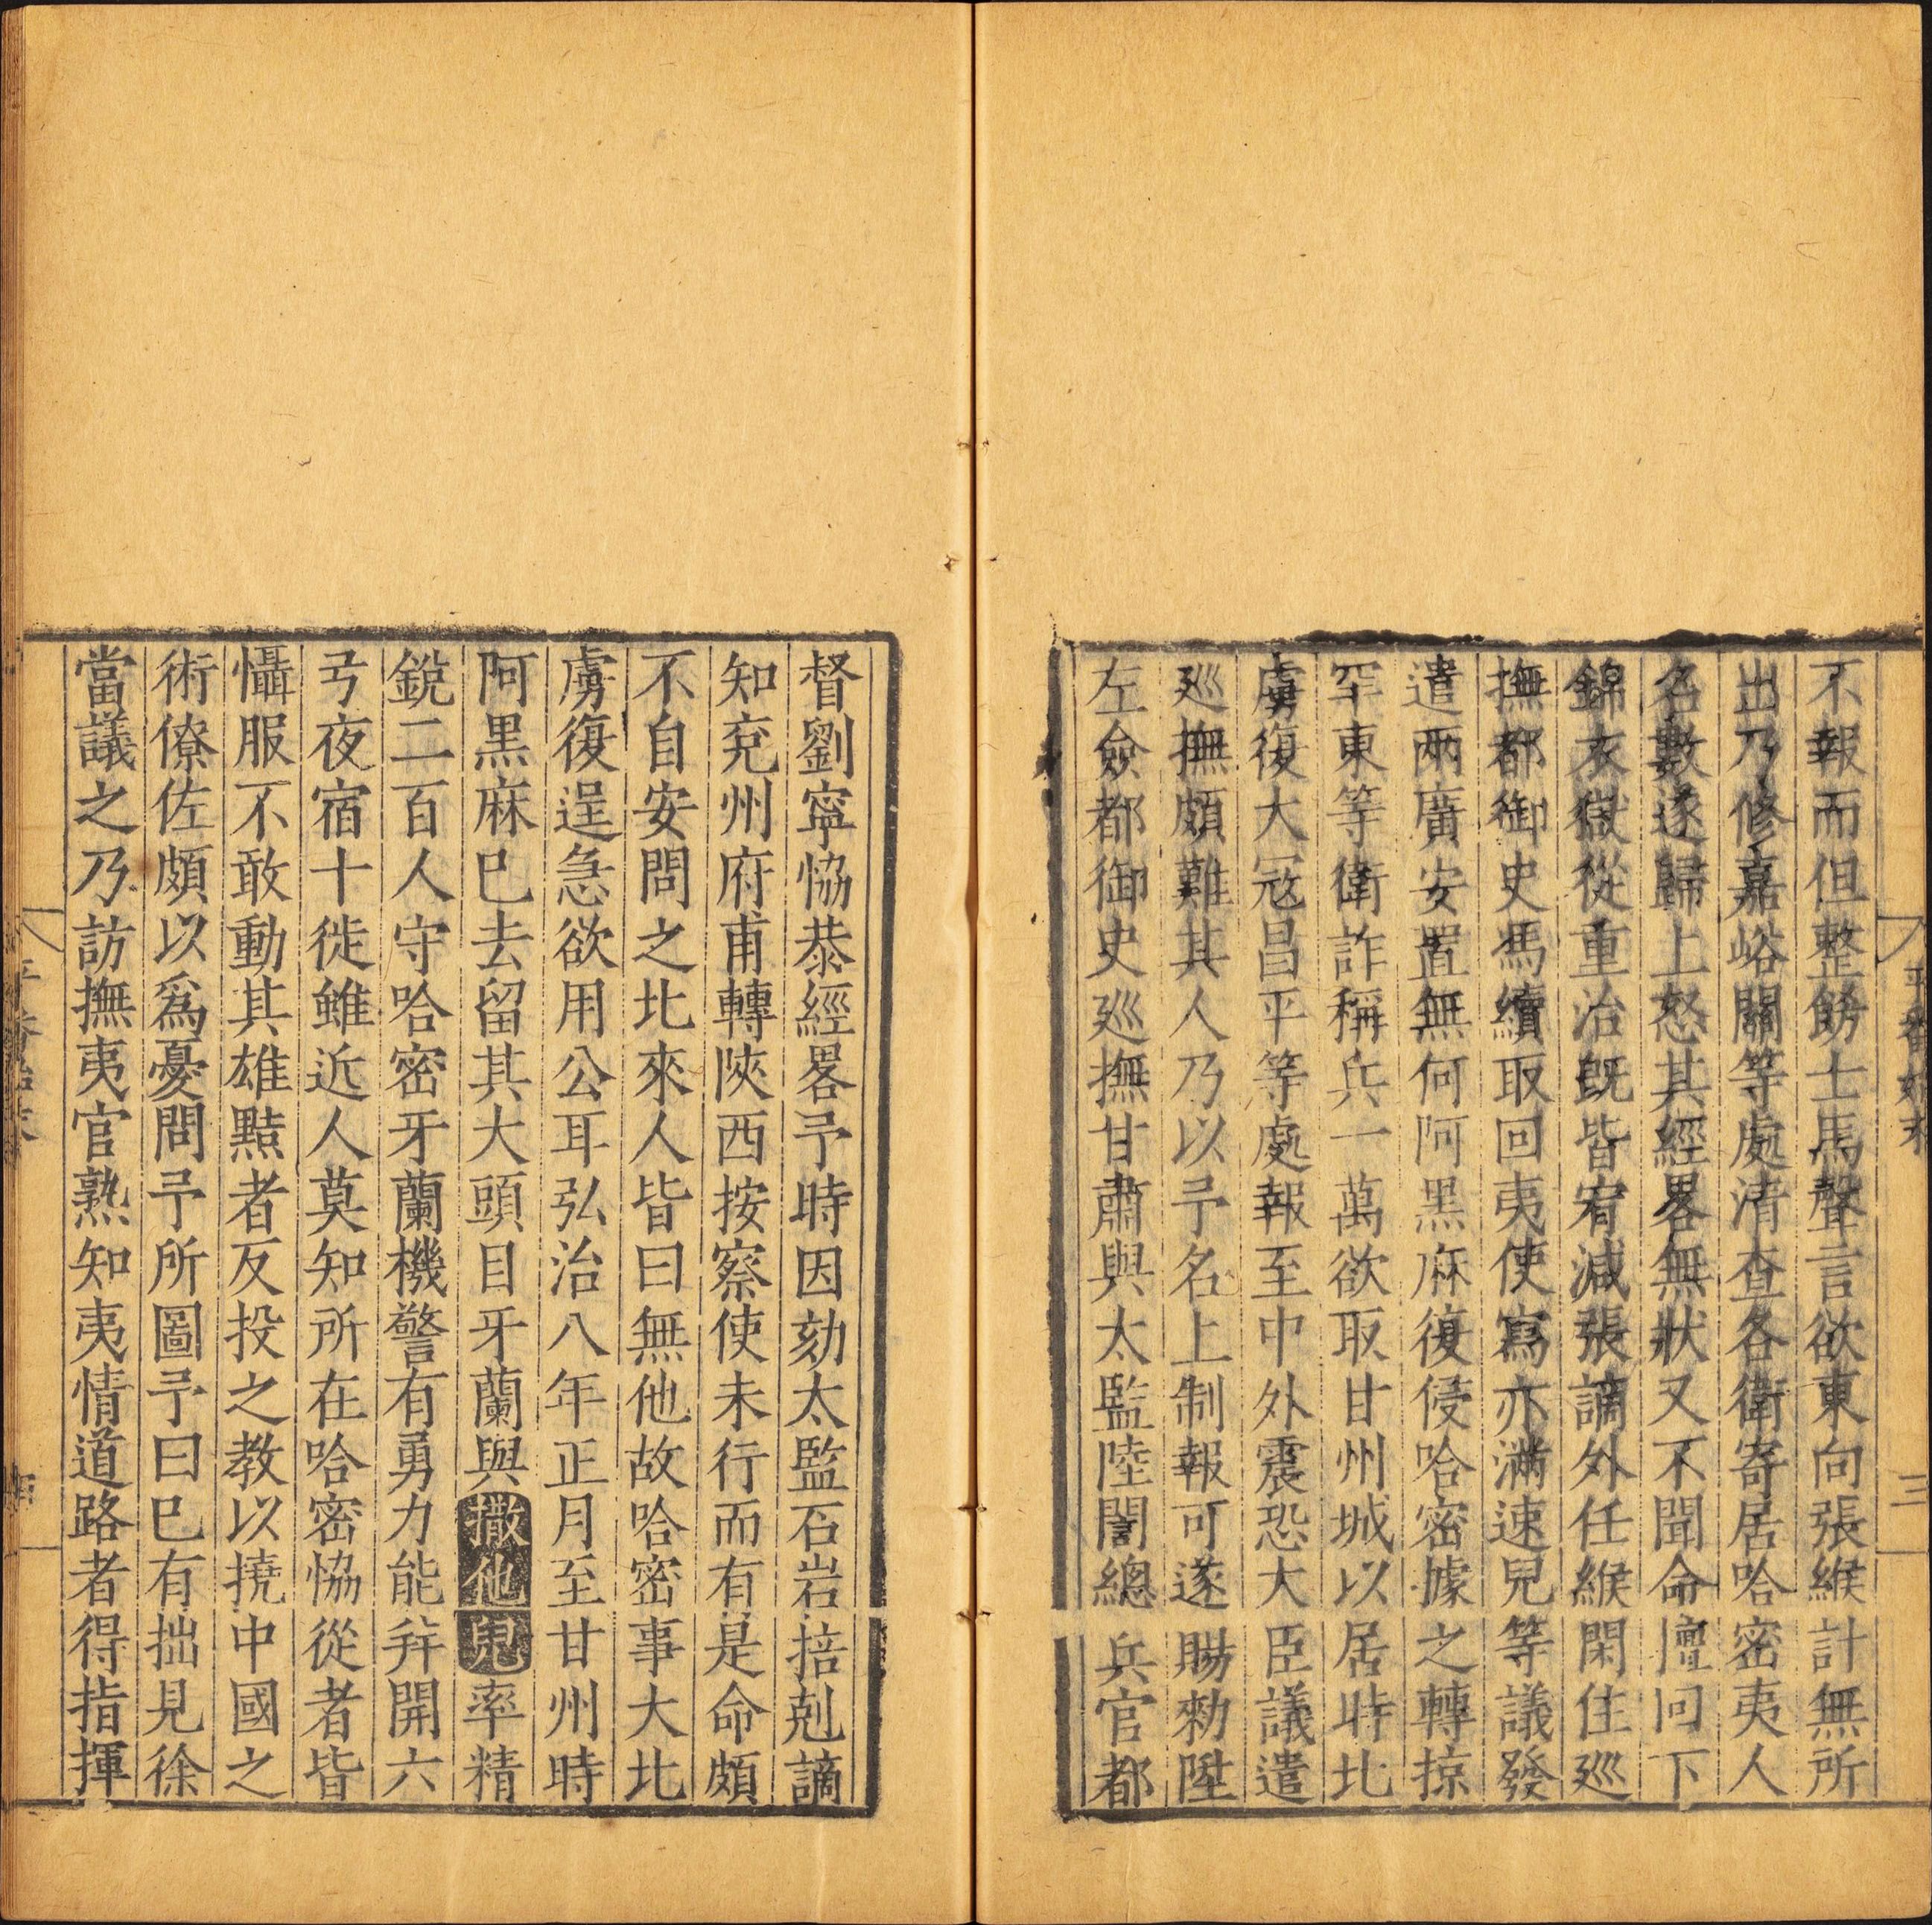 不報而但整飭士馬聲言欲東向張緱計無所
出乃修嘉峪關等處清查各衛寄居哈密夷人
名數遂歸上怒其經畧無狀又不聞命擅回下
錦衣獄從重治旣皆宥減張謫外任緱閑住廵
撫都御史馮續取回夷使寫亦滿速兒等議發
遣兩廣安置無何阿黑麻復侵哈密據之轉掠
罕東等衛詐稱兵一萬欲取甘州城以居時北
虜復大冦昌平等處報至中外震恐大臣議遣
廵撫頗難其人乃以予名上制報可遂賜勑陞
左僉都御史廵撫甘肅與太監陸誾總兵官都
平番始末
三
督劉寧恊恭經畧予時因劾太監石岩掊剋謫
知兖州府甫轉陝西按察使未行而有是命頗
不自安問之北來人皆曰無他故哈密事大北
虜復逞急欲用公耳弘治八年正月至甘州時
阿黑麻巳去留其大頭目牙蘭與撒他兒率精
銳二百人守哈密牙蘭機警有勇力能幷開六
弓夜宿十徙雖近人莫知所在哈密恊從者皆
懾服不敢動其雄黠者反投之教以撓中國之
術僚佐頗以爲憂問予所圖予曰巳有拙見徐
當議之乃訪撫夷官熟知夷情道路者得指揮